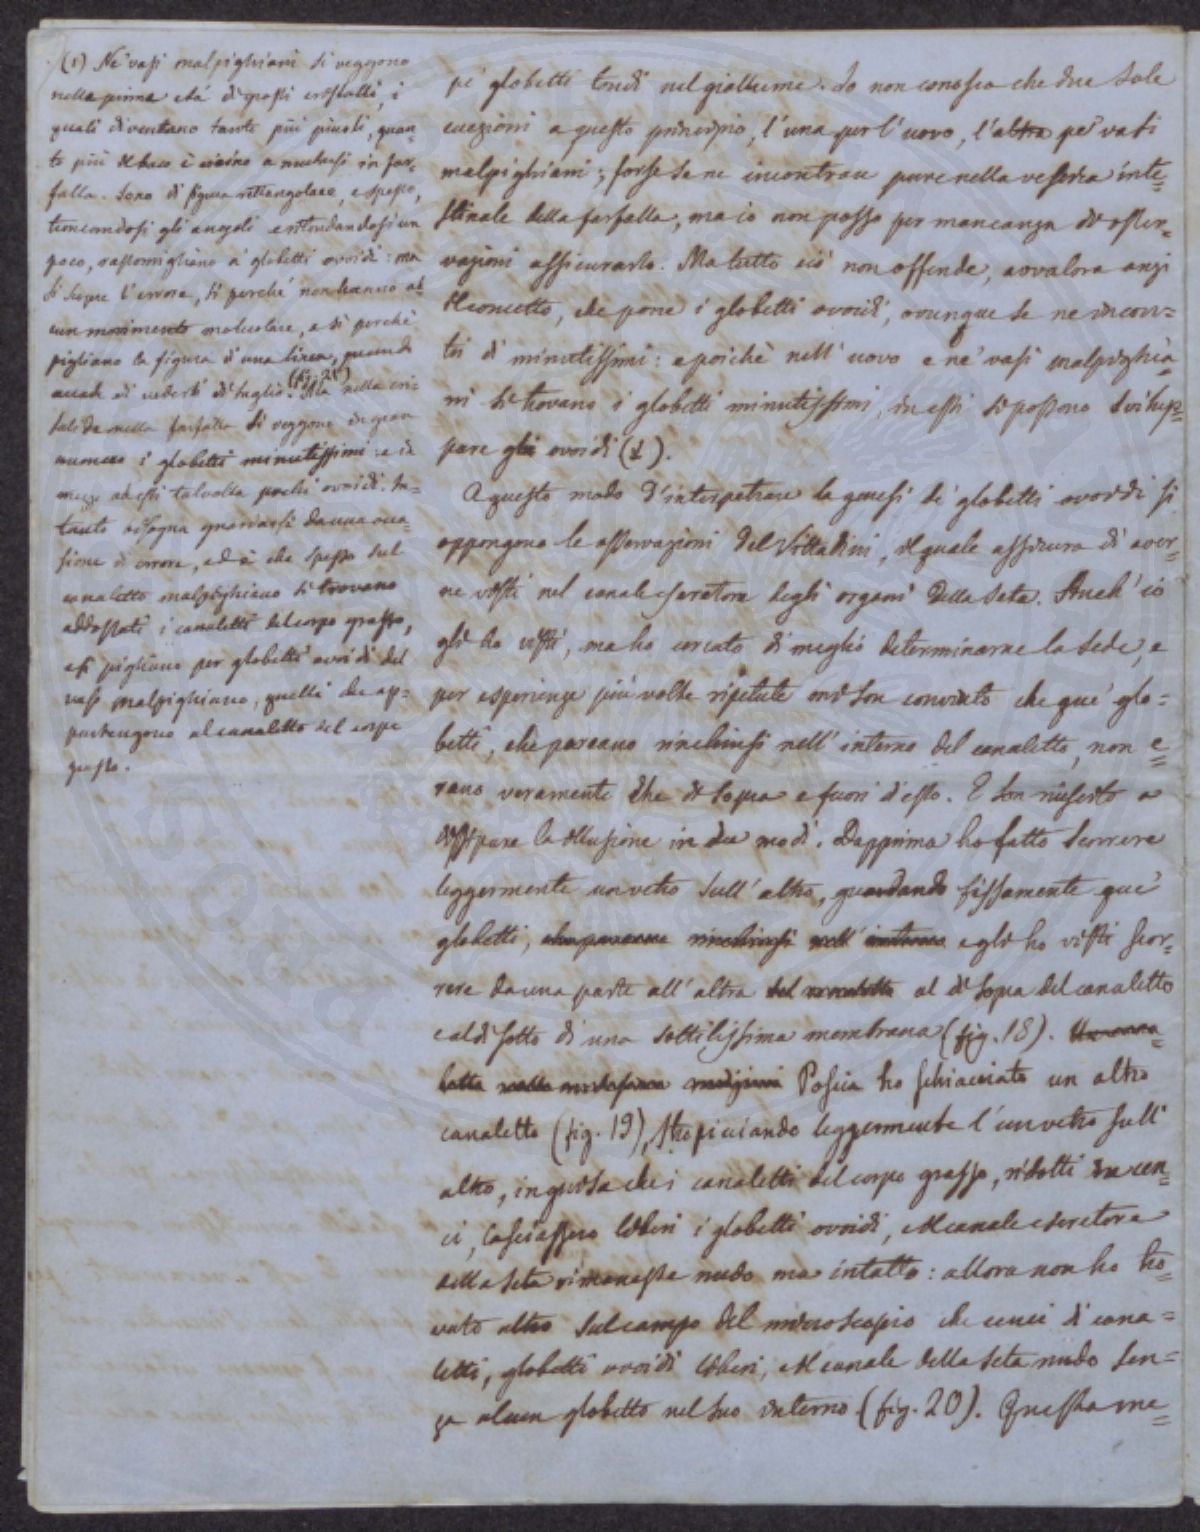 (1) Ne' vasi malpighiani si veggono
nella prima età di grossi cristalli, i
quali diventano tanto più piccoli, quan-
to più il baco è vicino a mutarsi in far-
falla. Sono di figura rettangolare, e spesso,
troncandosi gli angoli e rotondandosi un
poco, rassomigliano a' globetti ovoidi: ma
si scopre l'errore, sì perchè non hanno al-
cun movimento molecolare, e sì perchè
pigliano la figura di una linea, quando
accade di vederli di taglio (fig. 21). Ma nella cri-
salide e nella farfalla si veggono in gran
numero i globetti minutissimi: e in
mezzo ad essi talvolta pochi ovoidi. In-
tanto bisogna guardarsi da una cua-
sione di errore, ed è che spesso sul
canaletto malpighiano si trovano
addossati i canaletti del corpo grasso,
e si pigliano per globetti ovoidi del
vaso malpighiano, quelli che ap-
partengono al canaletto del corpo
grasso.
pe' globetti tondi nel giallume. Io non conosco che due sole
eccezioni a questo principio, l'una per l'uovo, l'altra pe' vasi
malpighiani; forse se ne incontrau pure nella vescica inte-
stinale della farfalla, ma io non posso per mancanza di osser-
vazioni assicurarlo. Ma tutto ciò non offende, avvalora anzi
il concetto, che pone i globetti ovoidi, ovunque se ne incon-
tri di minutissimi: e poichè nell'uovo e ne' vasi malpighia
ni si trovano i globetti minutissimi, in essi si possono svilup-
pare gli ovoidi (1).
A questo modo d'interpetrare la genesi de' globetti ovoidi si
oppongono le osservazioni del Vittadini, il quale assicura di aver-
ne visti nel canale escretore degli organi della seta. Anch'io
gli ho visti, ma ho cercato di meglio determinarne la sede, e
per esperienze più volte ripetute mi son convinto che que' glo-
betti, che pareano rinchiusi nell'interno del canaletto, non e-
rano veramente che di sopra e fuori d'esso. E son riuscito a
dissipare la illusione in due modi. Dapprima ho fatto scorrere
leggermente un vetro sull'altro, guardando fissamente que'
globetti, che pareano rinchiusi nell'interno e gli ho visti scor-
rere da una parte all'altra del canaletto al di sopra del canaletto
e al di sotto di una sottilissima membrana (fig. 18).
Poscia ho schiacciato un altro
canaletto (fig. 19), stropicciando leggermente l'un vetro sull'
altro, in guisa che i canaletti del corpo grasso, ridotti in cen-
ci, lasciassero liberi i globetti ovoidi, e il canale escretore
della seta rimanesse nudo ma intatto: allora non ho tro-
vato altro sul campo del microscopio che cenci di cana-
letti, globetti ovoidi liberi, e il canale della seta nudo sen-
za alcun globetto nel suo interno (fig. 20). Questa me-